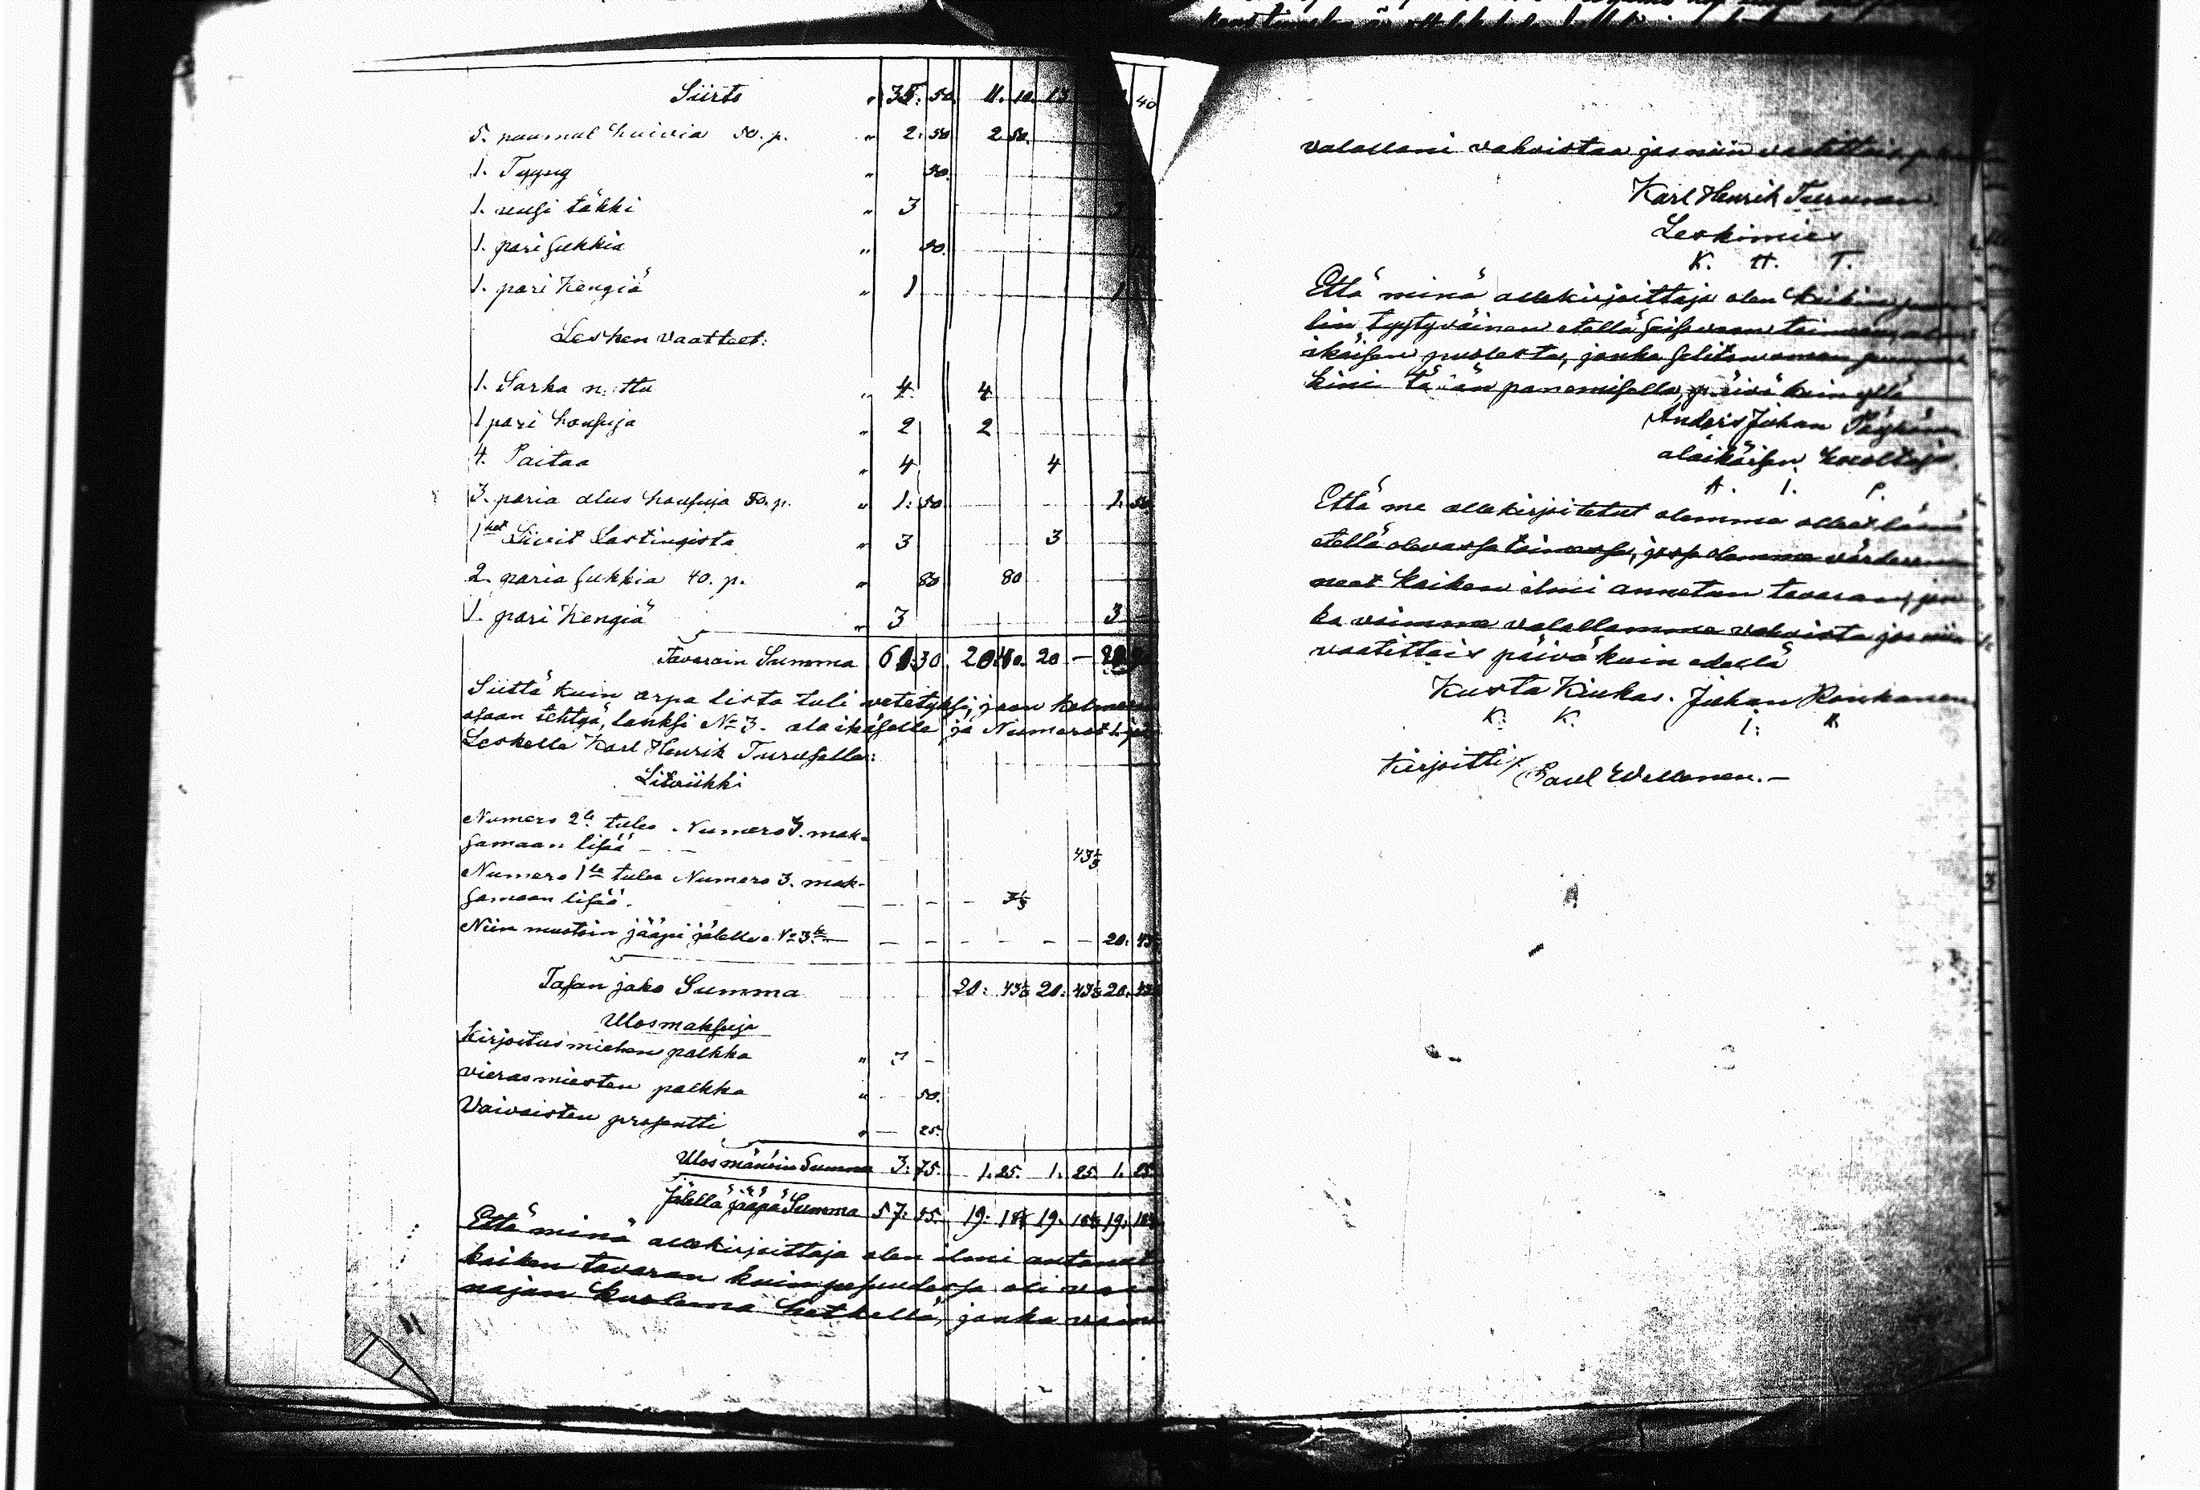 Siirto " 35. 50. 11. 10. 13 40
5. naamat huivia 50. p. " 2. 50 2 50.
1. Tyyny " 50.
1. uusi täkki " 3
1. pari sukkia " 50.
1. pari kengiä " 1 1
Lesken vaatteet:
1. Sarka n. ttu " 4. 4
1 pari housuja " 2 2
4. Paitaa " 4 4
3. paria alus housuja 50. p. " 1. 50 1. 50
1 Liivit Lastingista " 3 3
2. paria sukkia 40. p. " 80 80
1. pari kengiä " 3 3
Tavarain Summa 61. 30 20. 40. 20 —
Siittä kuin arpa lista tuli vetetyksi, jaon kolmeen
osaan tehtyä, lankesi No 3. alaikäselle ja Numerot 1. ja
Leskelle Karl Henrik Turuselle:
Litviikki
Numero 2le tulee Numero 3. mak-
samaan lisää — 43⅓
Numero 1le tulee Numero 3. mak-
samaan lisää. — — — 3⅓
Niin muotoin jääpi jälelle No 3le — — — — — — 20. 43⅓
Tasan jako Summa 20. 43⅓ 20. 43⅓ 20. 43⅓
Ulosmaksuja
Kirjoitus miehen palkka " 3 —
Vierasmiesten palkka " — 50.
Vaivaisten prosentti " — 25.
Ulos mänöin Summa 3. 75. 1. 25. 1. 25. 1. 25
Jälellä jääpä Summa 57. 55. 19. 18⅓ 19. 18⅓ 19. 18⅓
Että minä allekirjoittaja olen ilmi antanut
kaiken tavaran kuin pesuudessa oli vai
najan kuolema hetkellä, jonka voin
valallani vahvistaa jos niin vaatittais
Karl Henrik Turunen.
Leskimies
K. H. T.
Että minä allekirjoittaja olen kaikin puo
lin tyytyväinen etellä seisovaan toimeen, ala
ikäisen puolesta, jonka
kini tään panemisella, päivä kuin yllä
Anders Johan Pöyhönen
alaikäisen huoltaja.
A. I. P.
Että me allekirjoitetut olemme olleet läsnä
etellä olevassa toimessa, jossa olemme värderan
neet kaiken ilmi annetun tavaran, jon
ka voimme valallamme vahvista jos niin
vaatittais päivä kuin edellä
Kusta Kiukas. Johan Ronkanen
K. K. I. R.
Kirjoitti Paul Vellonen. —